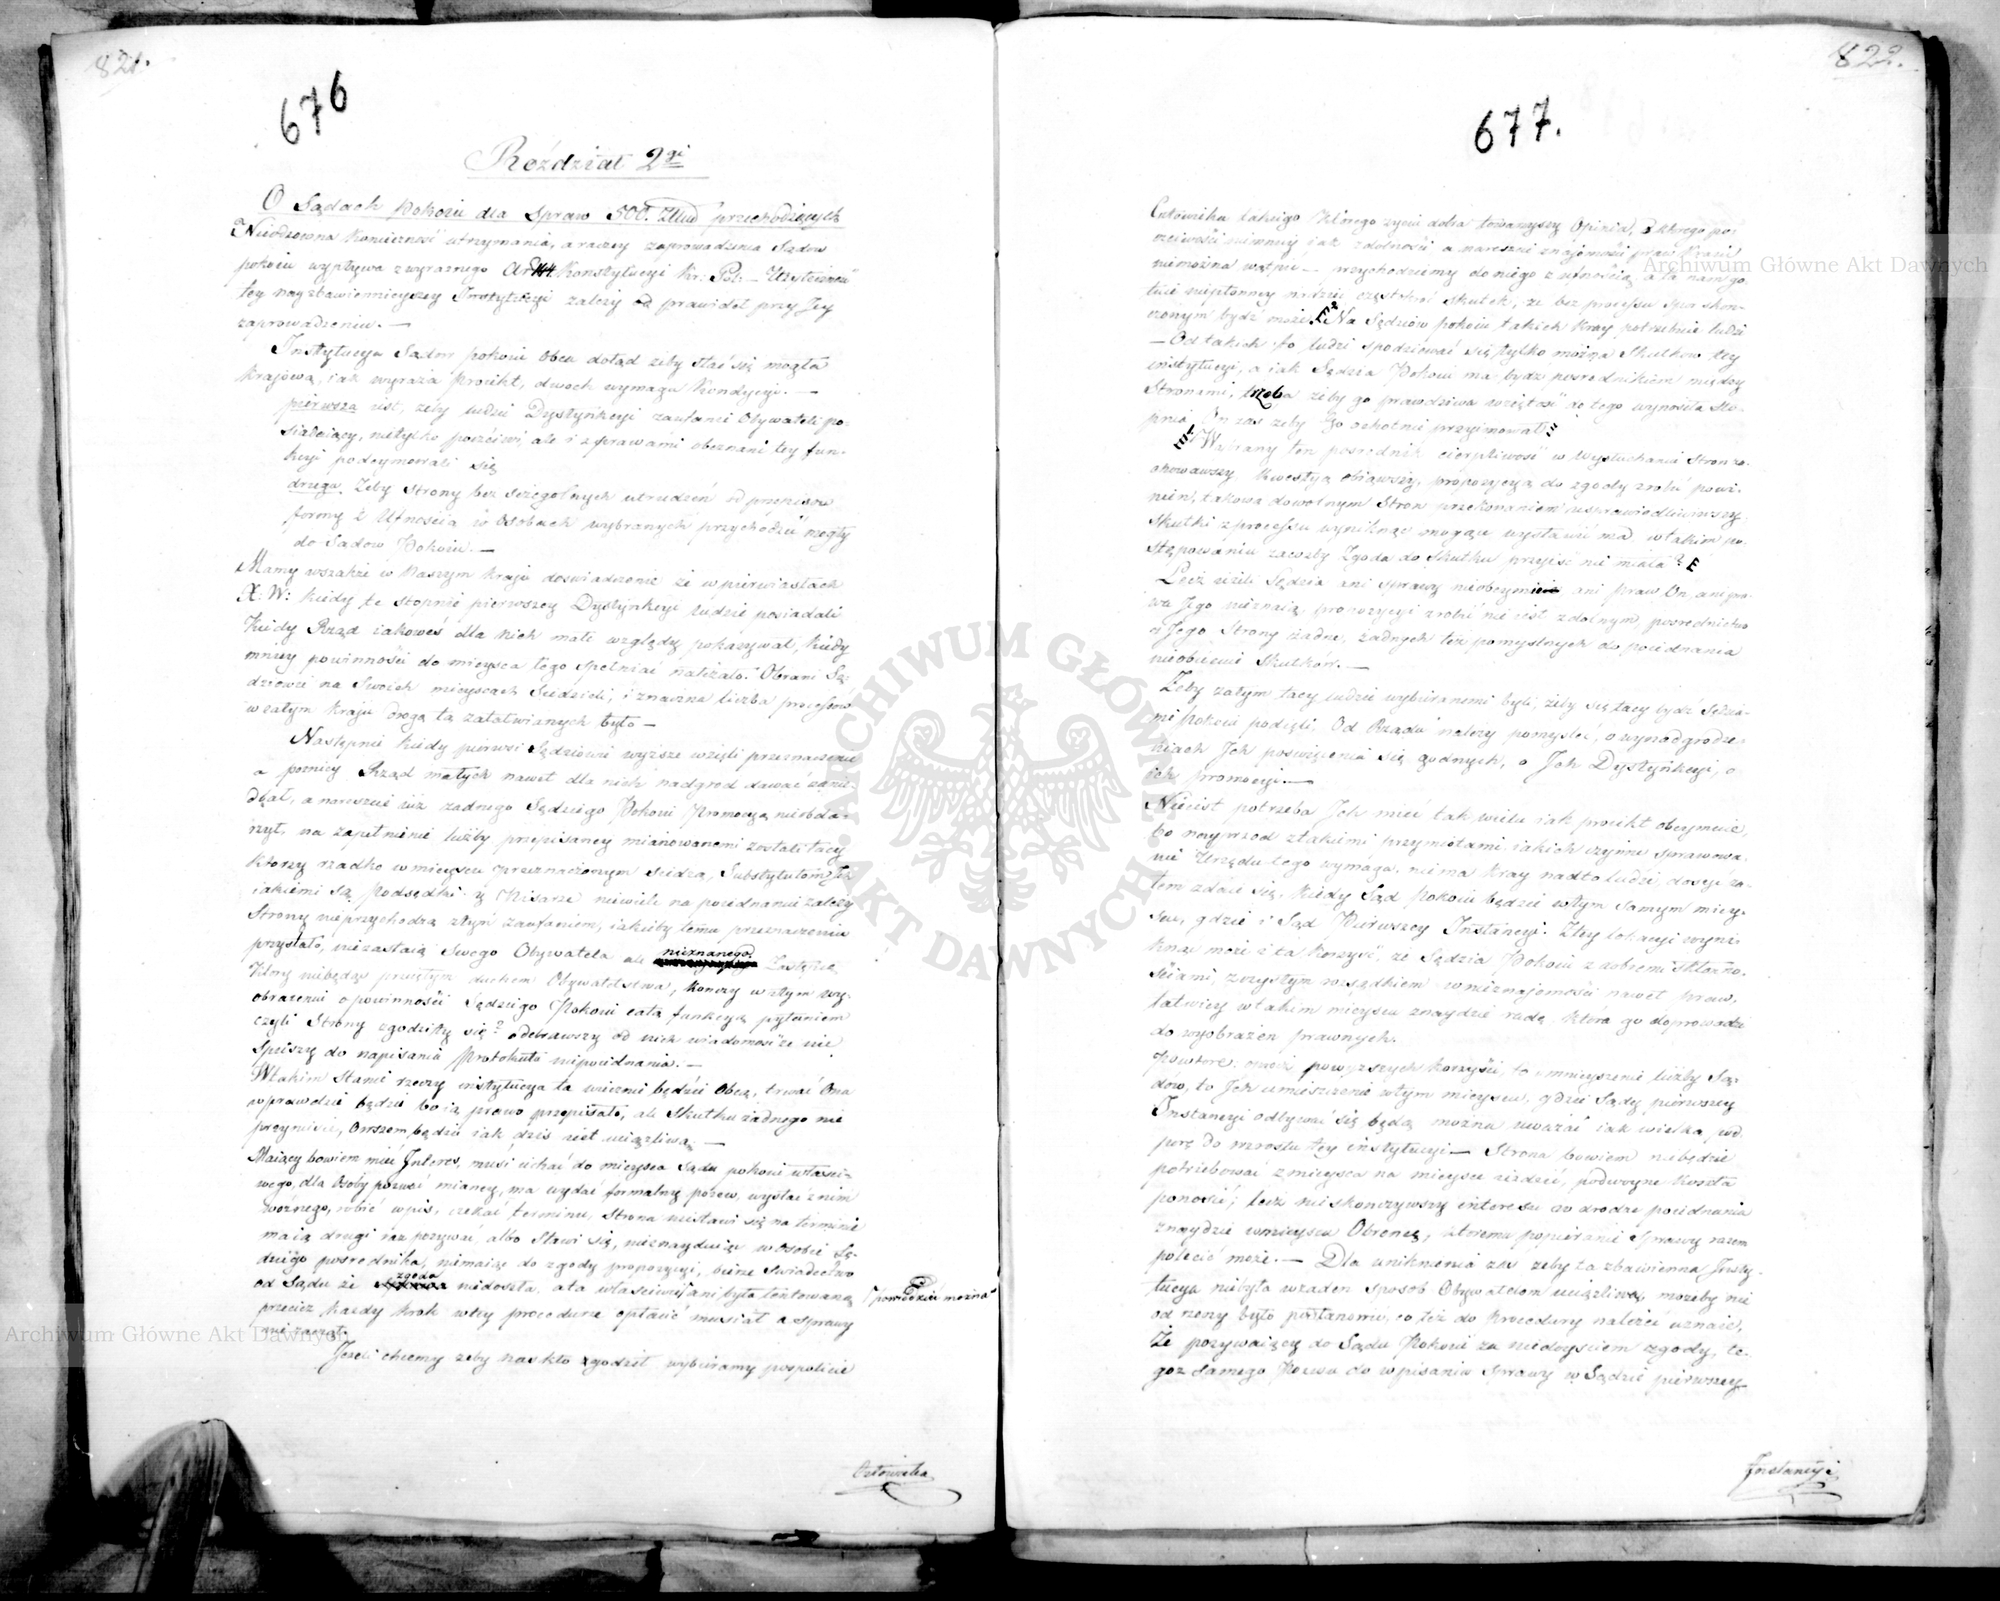 821.
676
Rozdział 2gi
O Sądach Pokoiu dla Spraw 500. Złłud przechodzących
Nieodzowna Konieczność utrzymania, a raczey zaprowadzenia Sądów
pokoiu wypływa z wyraznego Art 144 Konstytucyi Kr: Pol: — Użyteczność
tey nayzbawiennieyszey Instytucyi zależy od prawideł przy Jey
zaprowadzeniu. —
Instytucya Sądów pokoiu obca dotąd żeby stać się mogła
krajową, iak wyraża projekt, dwoch wymaga Kondycyi. —
pierwsza iest, żeby ludzie Dystynkcyi zaufanie Obywateli po-
siadaiący, nietylko poczciwi, ale i z prawami obeznani tey fun-
kcyi podeymowali się
druga. Żeby strony bez szczegolnych utrudzeń od przepisów
formy z Ufnością w Osobach wybranych przychodzić mogły
do Sądow Pokoiu. —
Mamy wszakże w Naszym kraju doswiadczenie że w pierwiastkach
X. W: kiedy te stopnie pierwszey Dystynkcyi ludzie posiadali
Kiedy Rząd iakoweś dla nich małe względy pokazywał, kiedy
mniey powinności do mieysca tego spełniać należało. Obrani Sę-
dziowie na Swoich mieyscach Siedzieli, i znaczna liczba processów
w całym kraju drogą tą załatwianych było —
Następnie kiedy pierwsi Sędziowie wyższe wzięli przeznaczenie
a pozniey Rząd małych nawet dla nich nadgrod dawać zanie-
dbał, a nareszcie iuż żadnego Sędziego Pokoiu Promocyą nieobda-
rzył, na zapełnienie liczby przepisaney mianowanemi zostali tacy
ktorzy rzadko w mieyscu przeznaczonym siedzą, Substytutom Ich
iakiemi są Podsędki y Pisarze niewiele na poiednaniu zależy
Strony nieprzychodzą z tym zaufaniem, iakieby temu przeznaczeniu
przystało, niezastaią Swego Obywatela ale nieznanego Zastępcę,
Który niebędąc przeięty duchem Obywatelstwa, kończy w złym wy-
obrażeniu o powinności Sędziego Pokoiu całą funkcyą pytaniem
czyli Strony zgodziły się? odebrawszy od nich wiadomość że nie
Spieszy do napisania Protokułu niepoiednania. —
W takim stanie rzeczy instytucya ta wiecznie będzie Obcą, trwać Ona
wprawdzie będzie bo ią prawo przepisało, ale Skutku żadnego nie
przyniesie, Owszem będzie iak dziś iest uciążliwą. —
Maiący bowiem mieć Interes, musi iechać do mieysca Sądu pokoiu właści-
wego, dla Osoby pozwać mianey, ma wydać formalny pozew, wysłać z nim
Woźnego, robić wpis, czekać terminu, Strona niestawi się na terminie
maią drugi raz pozywać, albo Stawi się, nieznayduiąc w osobie Sę-
dziego posrednika, niemaiąc do zgody propozycyi, bierze Swiadectwo
od Sądu że zgoda niedoszła, a ta właściwie ani była tentowaną
"powiedzieć można"
przecież każdy krok w tey procedurze opłacić musiał a sprawy
nie zaczął.
Jeżeli chcemy żeby nas kto zgodził wybieramy pospolicie
Człowieka
822.
677.
Człowieka takiego Którego życiu dobra towarzyszy Opinia, o ktorego po-
czciwości niemniey iak zdolności a nareszcie znajomości praw Kraiu
niemożna wątpić — przychodziemy do niego z ufnością, a ta namięt-
ności częstokroć Skutek, że bez processu spor skoń-
czonym bydź może. Na Sędziów pokoiu takich Kray potrzebuie ludzi
— Od takich to ludzi spodziewać się tylko można Skutkow tey
instytucyi, a iak Sędzia Pokoiu ma bydz posrednikiem między
Stronami, trzeba żeby go prawdziwa wziętość do tego wyniosła sto-
pnia On zas żeby go ochotnie przyimował
Wybrany ten posrednik cierpliwość w wysłuchaniu Stron za-
chowawszy Kwestyą obiąwszy, propozycyą do zgody zrobić powi-
nien, takową dowolnym Stron przekonaniem usprawiedliwiwszy
Skutki z processu wyniknąć mogące wystawić ma w takim po-
stępowaniu zawżdy Zgoda do Skutku przyjść nie miała?
Lecz ieżeli Sędzia ani sprawy nieobeymie ani praw On, ani pra-
wa Jego nieznaią, propozycyi zrobić nie iest zdolnym, posrednictwo
z Jego Strony żadne, żadnych też pomyslnych do poiednania
nieobiecuie Skutków. —
Żeby zatym tacy ludzie wybieranemi byli, żeby się tacy bydź Sędzia-
mi Pokoiu podięli, Od Rządu należy pomysleć, o wynadgrodze-
niach Ich poswięcenia się godnych, o Ich Dystynkcyi, o
ich promocyi. —
Nie iest potrzeba Ich mieć tak wielu iak projekt obeymuie,
bo nayprzod z takiemi przymiotami iakich czynne sprawowa-
nie Urzędu tego wymaga, niema kray nadto ludzi, dosyć za-
tem zdaie się, kiedy Sąd Pokoiu będzie w tym samym miey-
scu, gdzie i Sąd Pierwszey Instancyi. Z tey lokacyi wyni-
knąć może i ta korzyść, że Sędzia Pokoiu z dobremi Skłonno-
ściami, z czystym rozsądkiem w nieznajomości nawet praw,
łatwiey w takim mieyscu znaydzie radę która go doprowadzi
do wyobrażeń prawnych.
Powtore: oprocz powyższych korzyści, to umnieyszenie liczby Są-
dow, to Ich umieszczenie w tym mieyscu, gdzie Sądy pierwszey
Instancyi odbywać się będą można uważać iak wielką pod-
porę do wzrostu tey instytucyi — Strona bowiem niebędzie
potrzebować z mieysca na mieysce ieździć, podwoyne koszta
ponosić, lecz nieskończywszy interesu w drodze poiednania
znaydzie w mieyscu Obrońcę, ktoremu popieranie Sprawy razem
polecić może. — Dla uniknienia zas żeby ta zbawienna Insty-
tucya niebyła w żaden sposob Obywatelom uciążliwą możeby nie
od rzeczy było postanowić, co też do Procedury należeć uznaię,
Że pozywaiący do Sądu Pokoiu za niedoysciem zgody, te-
goż samego Pozwu do wpisania Sprawy w Sądzie pierwszey
Instancyi
Archiwum Główne Akt Dawnych
Archiwum Główne Akt Dawnych
ARCHIWUM GŁÓWNE AKT DAWNYCH